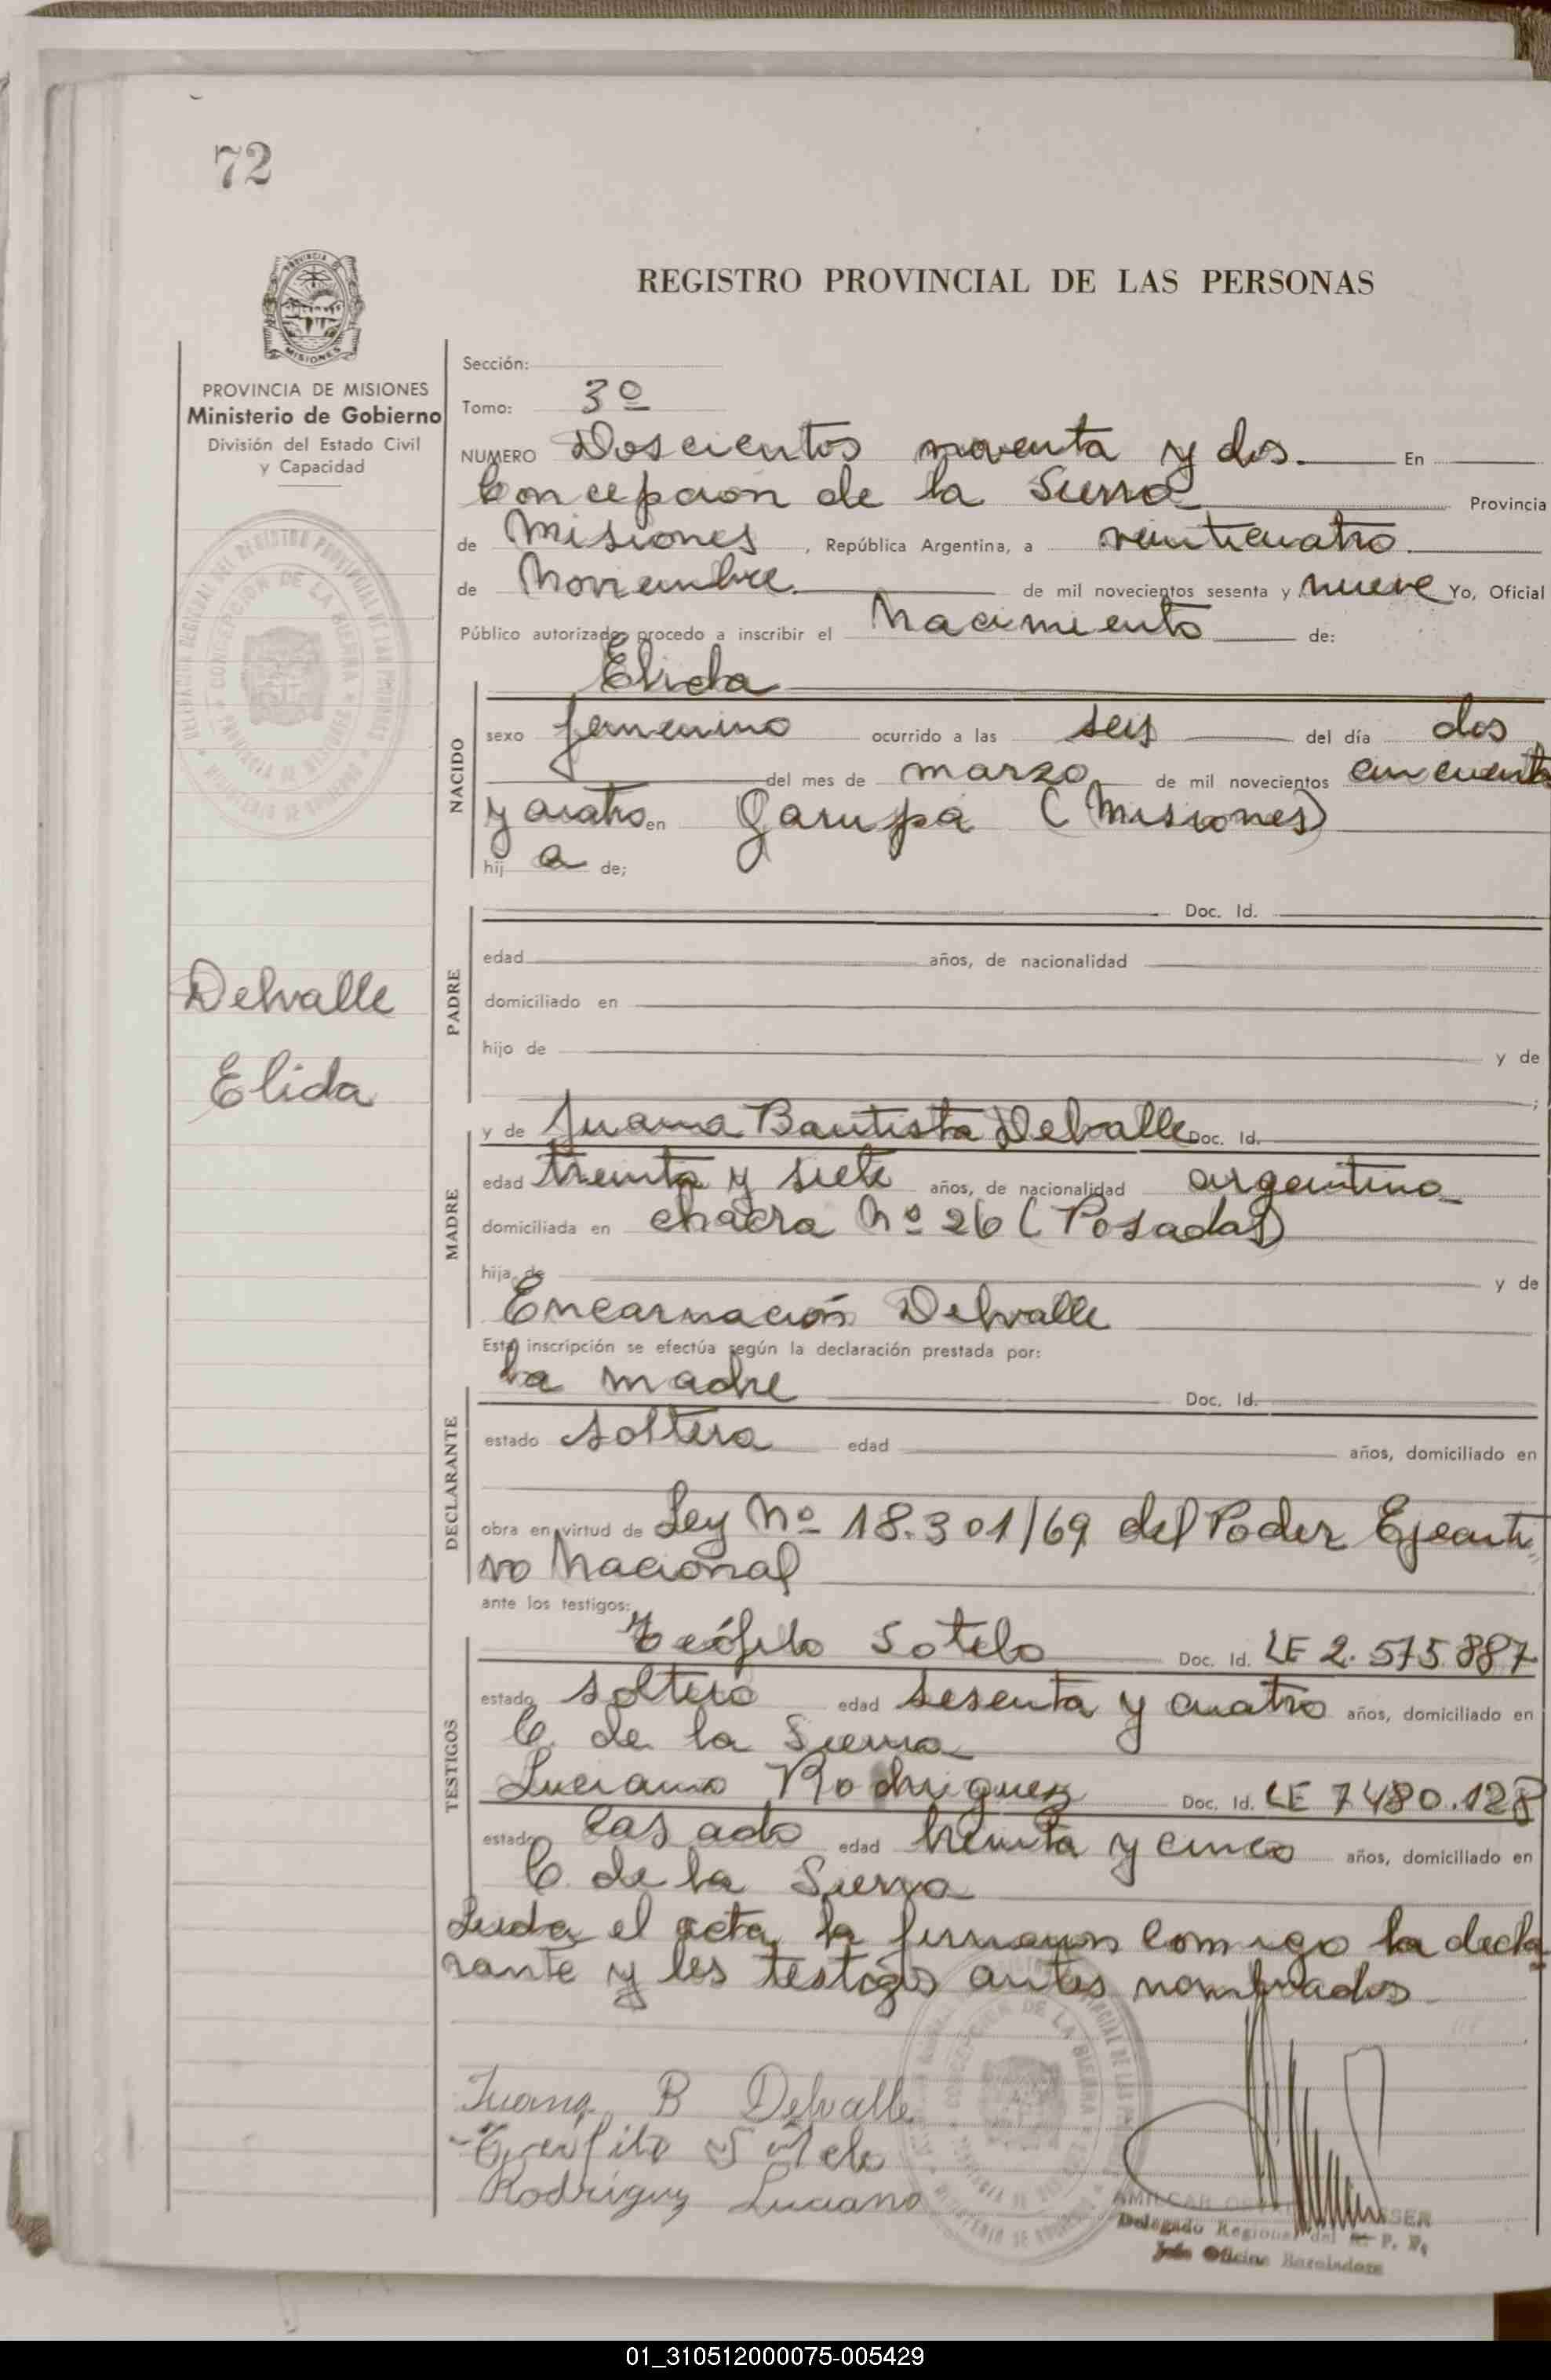 72
REGISTRO PROVINCIAL DE LAS PERSONAS
PROVINCIA DE MISIONES
Ministerio de Gobierno
División del Estado Civil
y Capacidad
Sección:
Tomo: 3º
NUMERO Doscientos noventa y dos. En
Concepción de la Sierra Provincia
de Misiones, República Argentina, a veinticuatro.
de Noviembre. de mil novecientos sesenta y nueve Yo, Oficial
Público autorizado, procedo a inscribir el Nacimiento de:
NACIDO
Elida
sexo femenino ocurrido a las seis del día dos
del mes de marzo de mil novecientos cincuenta
y cuatro en Garupá (Misiones)
hij a de;
PADRE
Doc. Id.
edad años, de nacionalidad
domiciliado en
hijo de y de
;
Delvalle
Elida
MADRE
y de Juana Bautista Delvalle Doc. Id.
edad treinta y siete años, de nacionalidad argentina
domiciliada en chacra Nº 26 (Posadas)
hija de y de
Encarnación Delvalle
Esta inscripción se efectúa según la declaración prestada por:
DECLARANTE
La madre Doc. Id.
estado soltera edad años, domiciliado en
obra en virtud de Ley Nº 18.301/69 del Poder Ejecuti"
vo Nacional
ante los testigos:
TESTIGOS
Teófilo Sotelo Doc. Id. LE 2.575.887
estado soltero edad sesenta y cuatro años, domiciliado en
C. de la Sierra
Luciano Rodriguez Doc. Id. LE 7480.128
estado casado edad treinta y cinco años, domiciliado en
C. de la Sierra
Leida el acta, la firmaron comigo la decla
rante y los testigos antes nombrados
Juana B Delvalle
Teofilo Sotelo
Rodriguez Luciano
AMILCAR
Delegado Regional del R. P. P.
Jefe Oficina
01_310512000075-005429